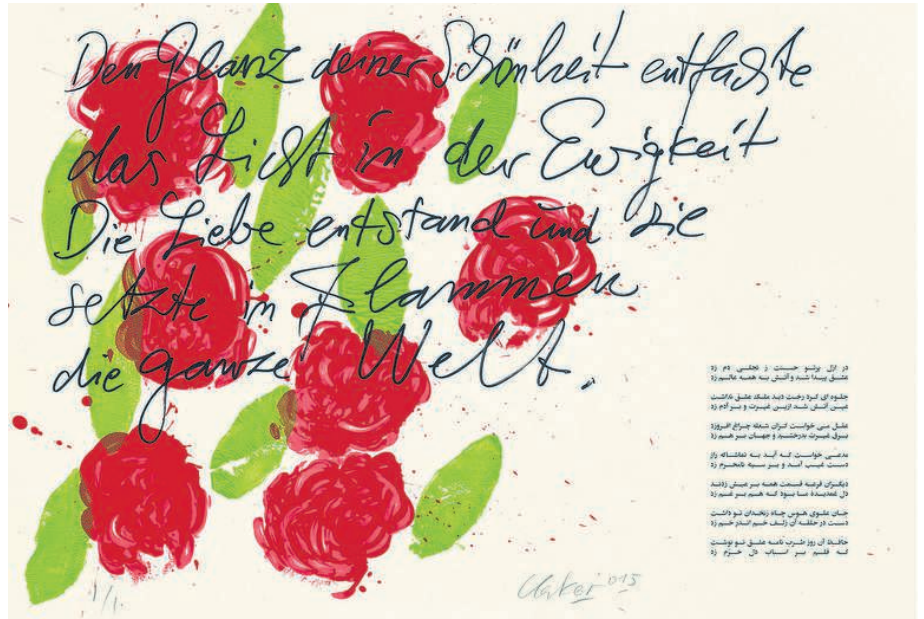 Den Glanz deiner Schönheit entfachte
das Licht in der Ewigkeit
Die Liebe entstand und sie
setzte in Flammen
die ganze Welt.
در ازل پرتو حسنت ز تجلی دم زد
عشق پیدا شد و آتش به همه عالم زد
جلوه ای کرد رخت دید ملک عشق نداشت
عین آتش شد ازین غیرت و بر آدم زد
عقل می خواست کزان شعله چراغ افروزد
برق غیرت بدرخشید و جهان بر هم زد
مدعی خواست که آید به تماشاگه راز
دست غیب آمد و بر سینه نامحرم زد
دیگران قرعه قسمت همه بر عیش زدند
دل غمدیده ما بود که هم بر غم زد
جان علوی هوس چاه زنخدان تو داشت
دست در حلقه آن زلف خم اندر خم زد
حافظ آن روز طرب نامه عشق تو نوشت
که قلم بر سر اسباب دل خرم زد
1/1
015